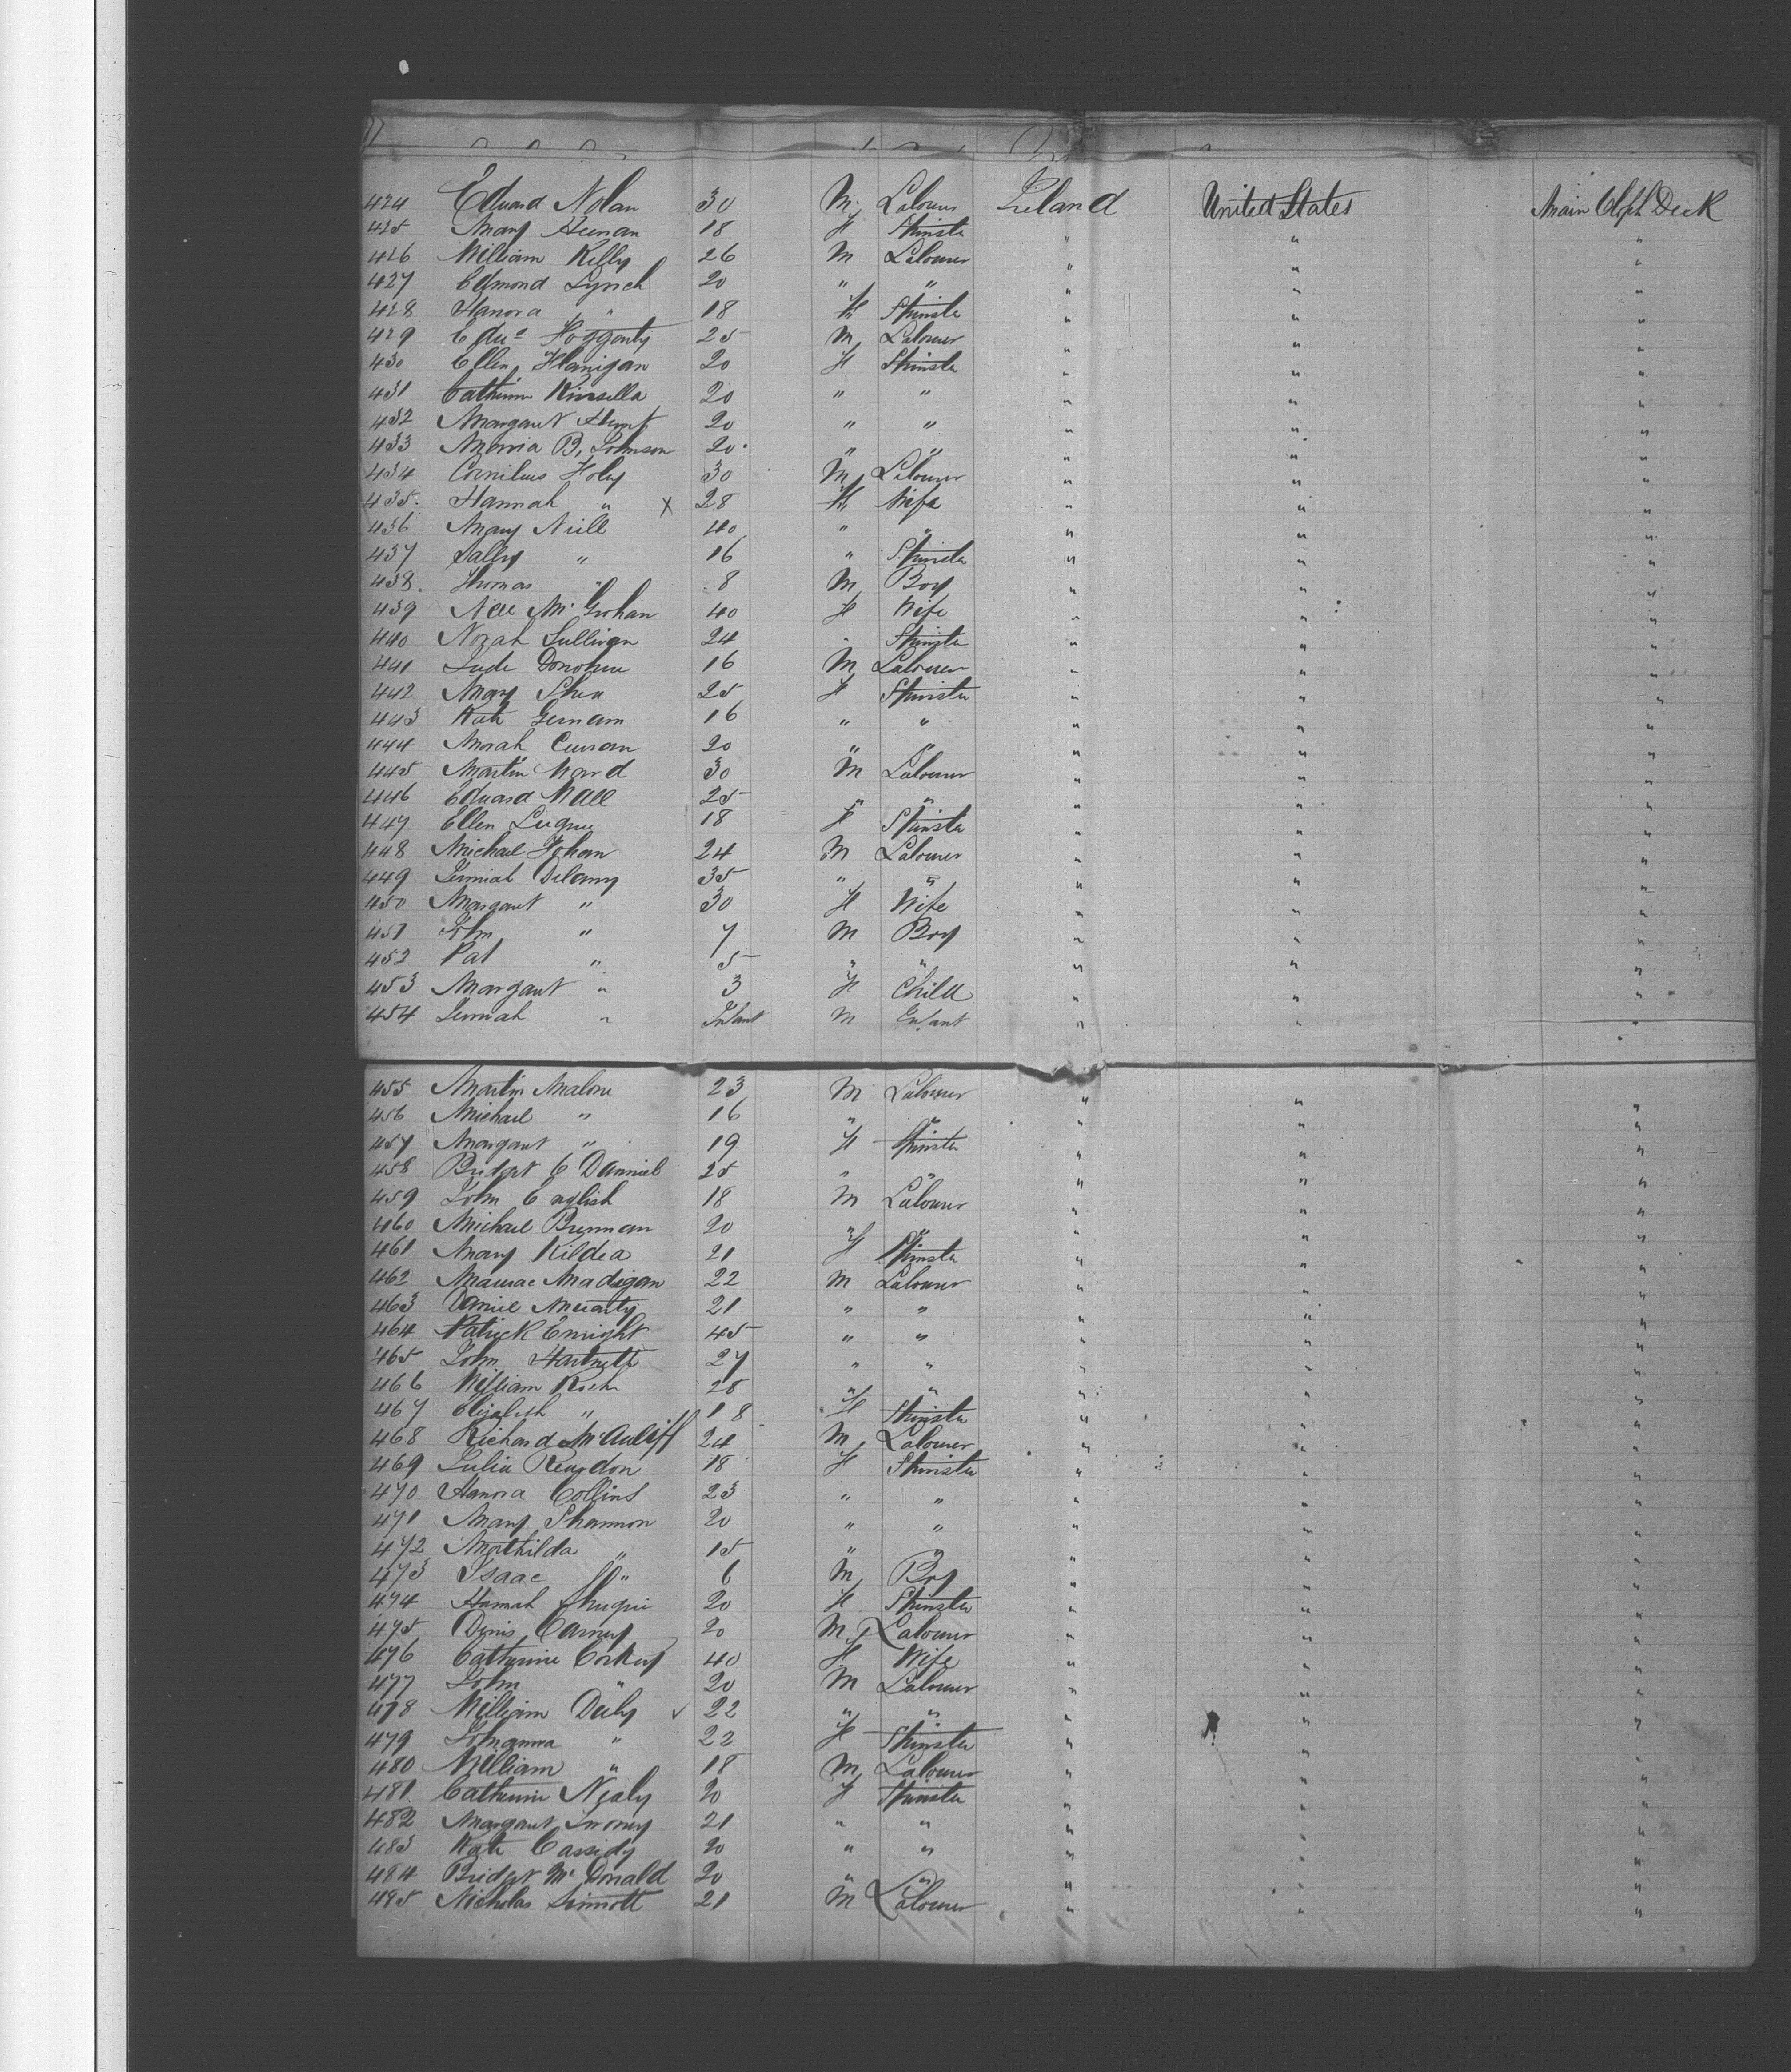 424 Edward Nolan 30 M. Labourer Ireland United States Main Upper Deck
425 Mary Heenan 18 F Spinster " " "
426 William Kelly 26 M Labourer " " "
427 Edmond Lynch 20 " " " " "
428 Hanora " 18 F Spinster " " "
429 Edwd Hoggarty 25 M Labourer " " "
430 Ellen Flanigan 20 F Spinster " " "
431 Catherine Kinsella 20 " " " " "
432 Margaret Hunt 20 " " " " "
433 Maria B. Johnson 20 " " " " "
434 Cornilius Foley 30 M Labourer " " "
435. Hannah " X 28 F Wife " " "
436 Mary Neill 40 " " " " "
437 Sally " 16 " Spinster " " "
438. Thomas " 8 M Boy " " "
439 40 F Wife " " "
440 Norah Sullivan 24 " Spinster " " "
441 Donohue 16 M Labourer " " "
442 Mary Shea 25 F Spinster " " "
443 Kate 16 " " " " "
444 Norah Curran 20 " " " " "
445 Martin Ward 30 M Labourer " " "
446 Edward Wall 25 " " " " "
447 Ellen 18 F Spinster " " "
448 Michael 24 M Labourer " " "
449 Jermiah Delany 35 " " " " "
450 Margaret " 30 F Wife " " "
451 John " 7 M Boy " " "
452 Pat " 5 " " " " "
453 Margaret " 3 F Child " " "
454 Jermiah " Infant M Infant " " "
455 Martin Malone 23 M Labourer " " "
456 Michael " 16 " " " " "
457 Margaret " 19 F Spinster " " "
458 Bridget 25 " " " " "
459 John English 18 M Labourer " " "
460 Michael Brennan 20 " " " " "
461 Mary Kildea 21 F Spinster " " "
462 Madigan 22 M Labourer " " "
463 Daniel Moriarty 21 " " " " "
464 Patrick Enright 45 " " " " "
465 John Hartnett 27 " " " " "
466 William Roche 28 " " " " "
467 Elizabeth " 18 F Spinster " " "
468 Richard McAuliff 24 M Labourer " " "
469 Julia Reardon 18 F Spinster " " "
470 Hanora Collins 23 " " " " "
471 Mary Shannon 20 " " " " "
472 Mathilda " 15 " " " " "
473 Isaac " 6 M Boy " " "
474 Hannah 20 F Spinster " " "
475 Denis Carney 20 M Labourer " " "
476 Catherine Corkery 40 F Wife " " "
477 John " 20 M Labourer " " "
478 William Daly 22 " " " " "
479 " 22 F Spinster " " "
480 William " 18 M Labourer " " "
481. Catherine Nealy 20 F Spinster " " "
482 Margaret 21 " " " " "
483 Kate Cassidy 20 " " " " "
484 Bridget McDonald 20 " " " " "
485 Nicholas Sinnott 21 M Labourer " " "